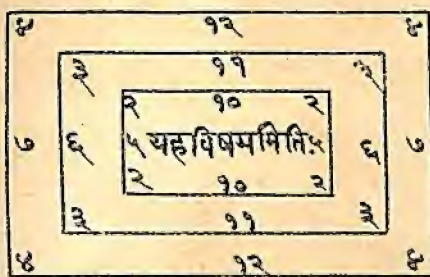 ४ १२ ४
३ ११ ३
२ १० २
७ ६ ५ यहविषममितिः ५ ६ ७
२ १० २
३ ११ ३
४ १२ ४